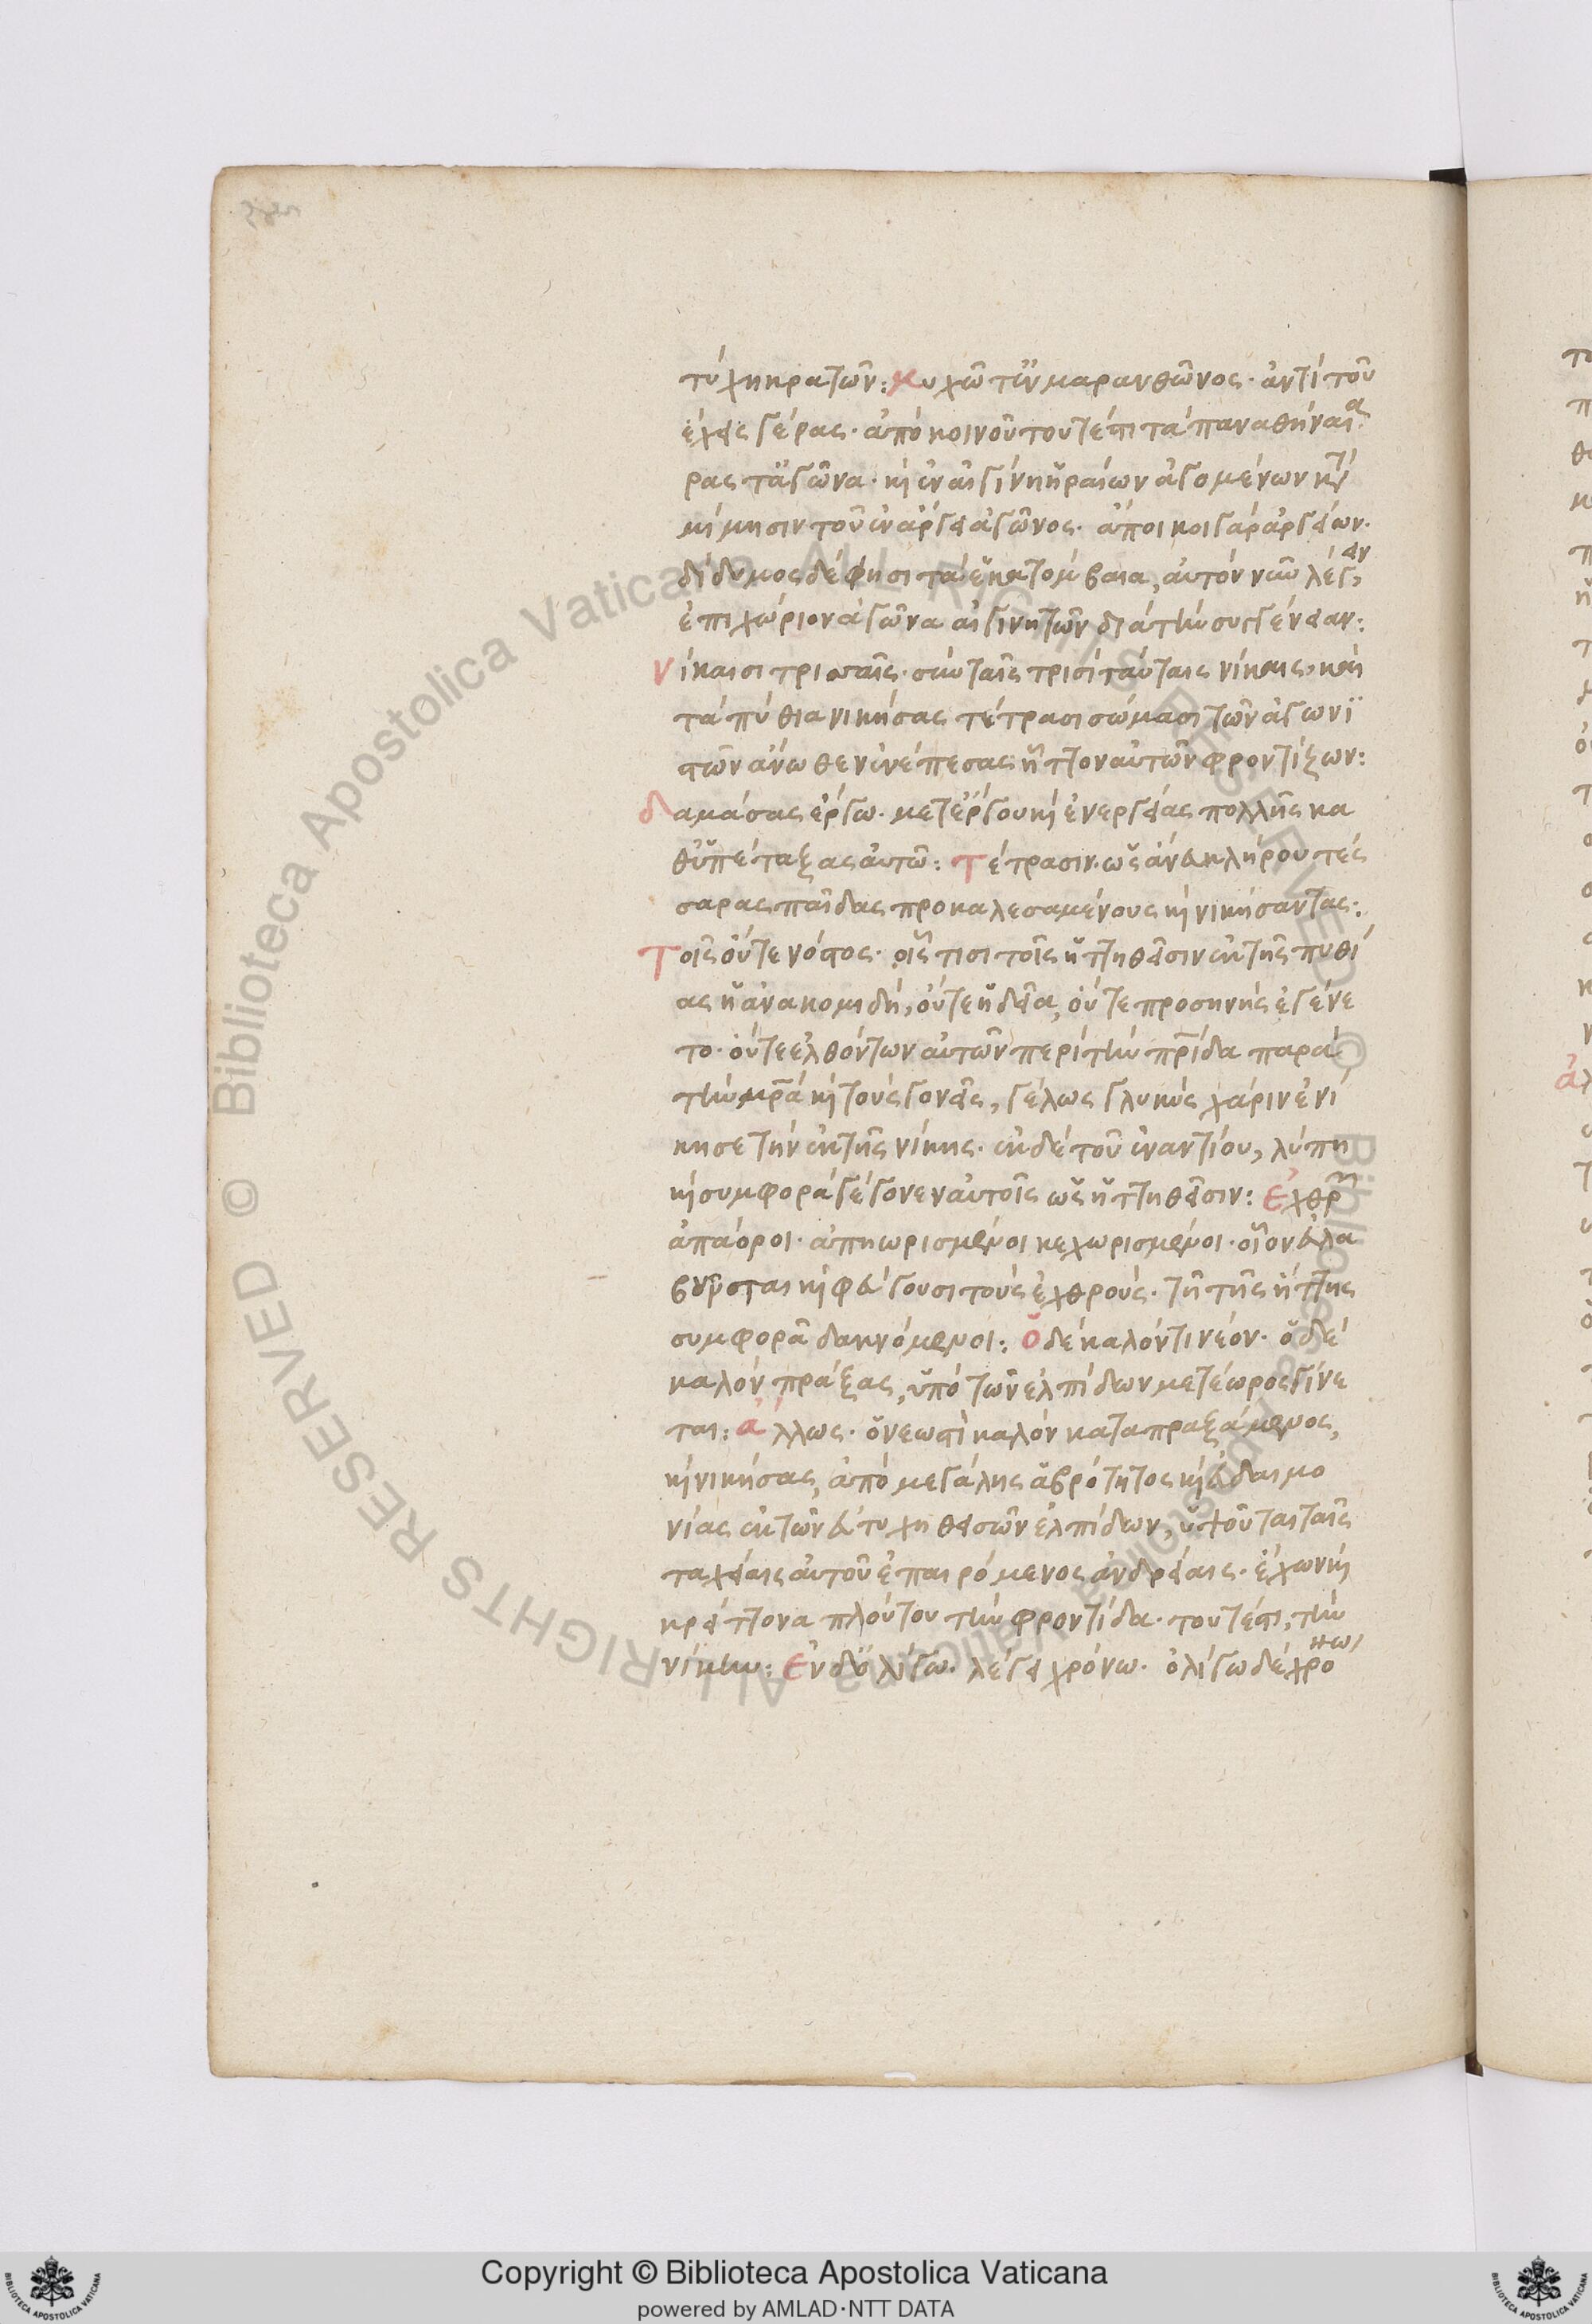 τύχη κρατῶν: μυχῶ τ' ἐν μαραθῶνος· ἀντὶ τοῦ
ἔχεις γέρας· ἀπὸ κοινοῦ τουτέστι τὰ παναθήναια
ρας τ' ἀγῶνα· καὶ ἐν αἰγίνη ἡραίων ἀγομένων κατὰ
μίμησιν τοῦ ἐν ἄργει ἀγῶνος· ἄποικοι γὰρ ἀργείων·
δίδυμος δέ φησι τὰ ἑκατόμβαια, αὐτὸν νῦν λέγειν,
ἐπιχώριον ἀγῶνα αἰγινητῶν διὰ τὴν συγγένειαν:
νίκαισι τρισσαῖς· σὺν ταῖς τρισὶ ταύταις νίκαις, καὶ
τὰ πύθια νικήσας τέτρασι σώμασι τῶν ἀγωνι
στῶν ἄνωθεν ἐνέπεσας ἧττον αὐτῶν φροντίζων:
δαμάσας ἔργω· μετ' ἔργου καὶ ἐνεργείας πολλῆς κα
θυπέταξας αὐτῶ: Τέτρασιν· ὡς ἀνὰ κλήρου τέσ
σαρας παῖδας προκαλεσαμένους καὶ νικήσαντας:
Τοῖς οὔτε νόστος· οἷς τισι τοῖς ἡττηθεῖσιν ἐκ τῆς πυθί
ας ἡ ἀνακομιδὴ, οὔτε ἡδεῖα, οὔτε προσηνὴς ἐγένε
το· οὔτε ἐλθόντων αὐτῶν περὶ τὴν πρίδα παρὰ
τὴν μρα καὶ τοὺς γονεῖς, γέλως γλυκὺς χάριν ἐνί
κησε τὴν ἐκ τῆς νίκης· ἐκ δὲ τοῦ ἐναντίου, λύπη
καὶ συμφορὰ γέγονεν αὐτοῖς ὡς ἡττηθεῖσιν: ἐχθρῶν
ἀπάοροι· ἀπηωρισμένοι κεχωρισμένοι· οἷον εὐλα
βοῦνται καὶ φεύγουσι τοὺς ἐχθροὺς· τῆ τῆς ἥττης
συμφορᾶ δακνόμενοι: ὁ δὲ καλόν τι νέον· ὁ δὲ
καλὸν πράξας, ὑπὸ τῶν ἐλπίδων μετέωρος γίνε
ται: ἄλλως· ὁ νεωστὶ καλὸν καταπραξάμενος,
καὶ νικήσας, ἀπὸ μεγάλης ἁβρότητος καὶ εὐδαιμο
νίας ἐκ τῶν εὐτυχηθεισῶν ἐλπίδων, ὑψοῦται ταῖς
ταχείαις αὐτοῦ ἐπαιρόμενος ἀνδρείαις· ἔχων καὶ
κρείττονα πλούτου τὴν φροντίδα· τουτέστι, τὴν
νίκην: ἐν δ' ὀλίγω· λέγει χρόνω· ὀλίγω δὲ χρό